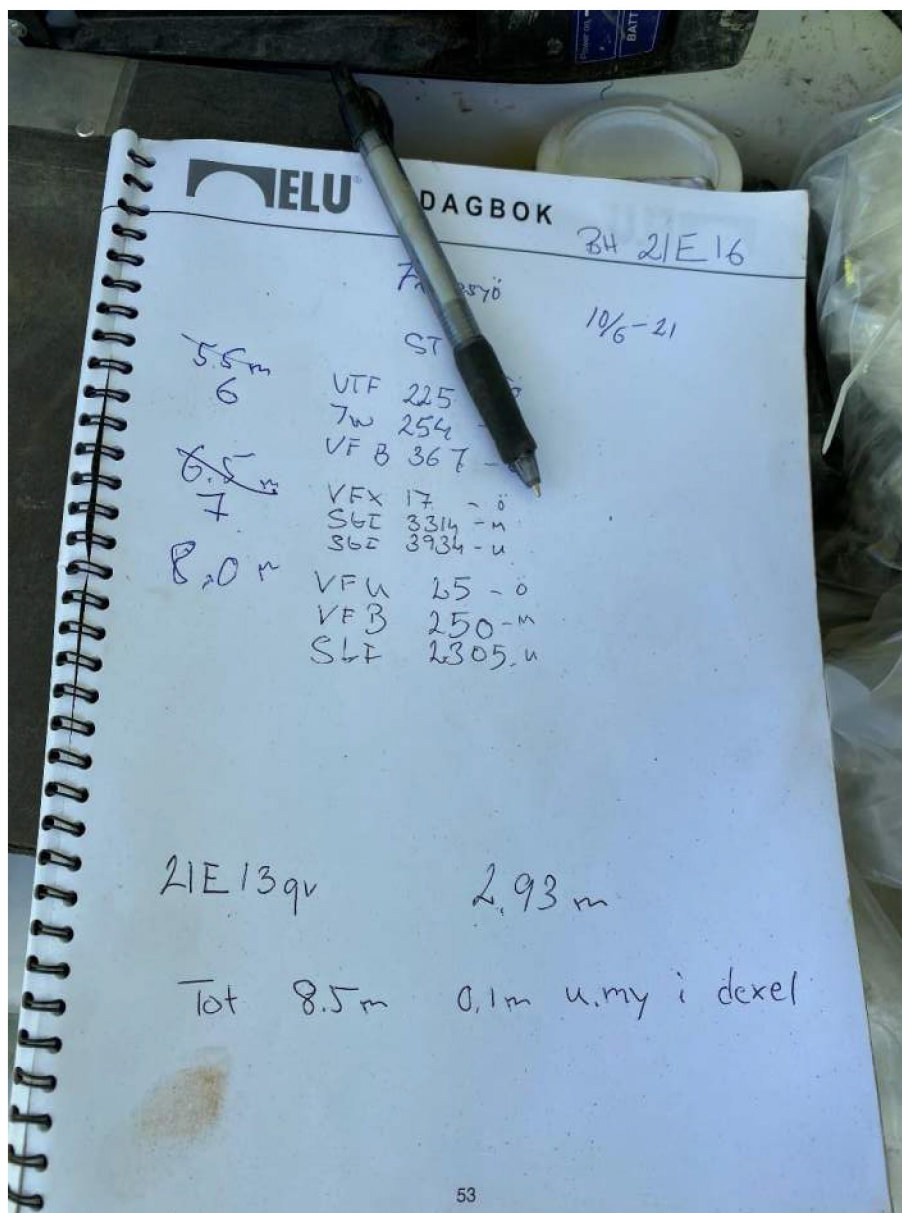 ELU DAGBOK
BH 21E16
10/6-21
ST
5.5m
6
VTF 225
7W 254
VF B 367
6.5 m
7
VFX 17 - ö
SGI 3314 - m
SGI 3934 - u
8,0 m
VFU 25 - ö
VFB 250 - m
SGI 2305. u
21E13gv 2.93 m
Tot 8.5m 0.1m u.my i dexel
53